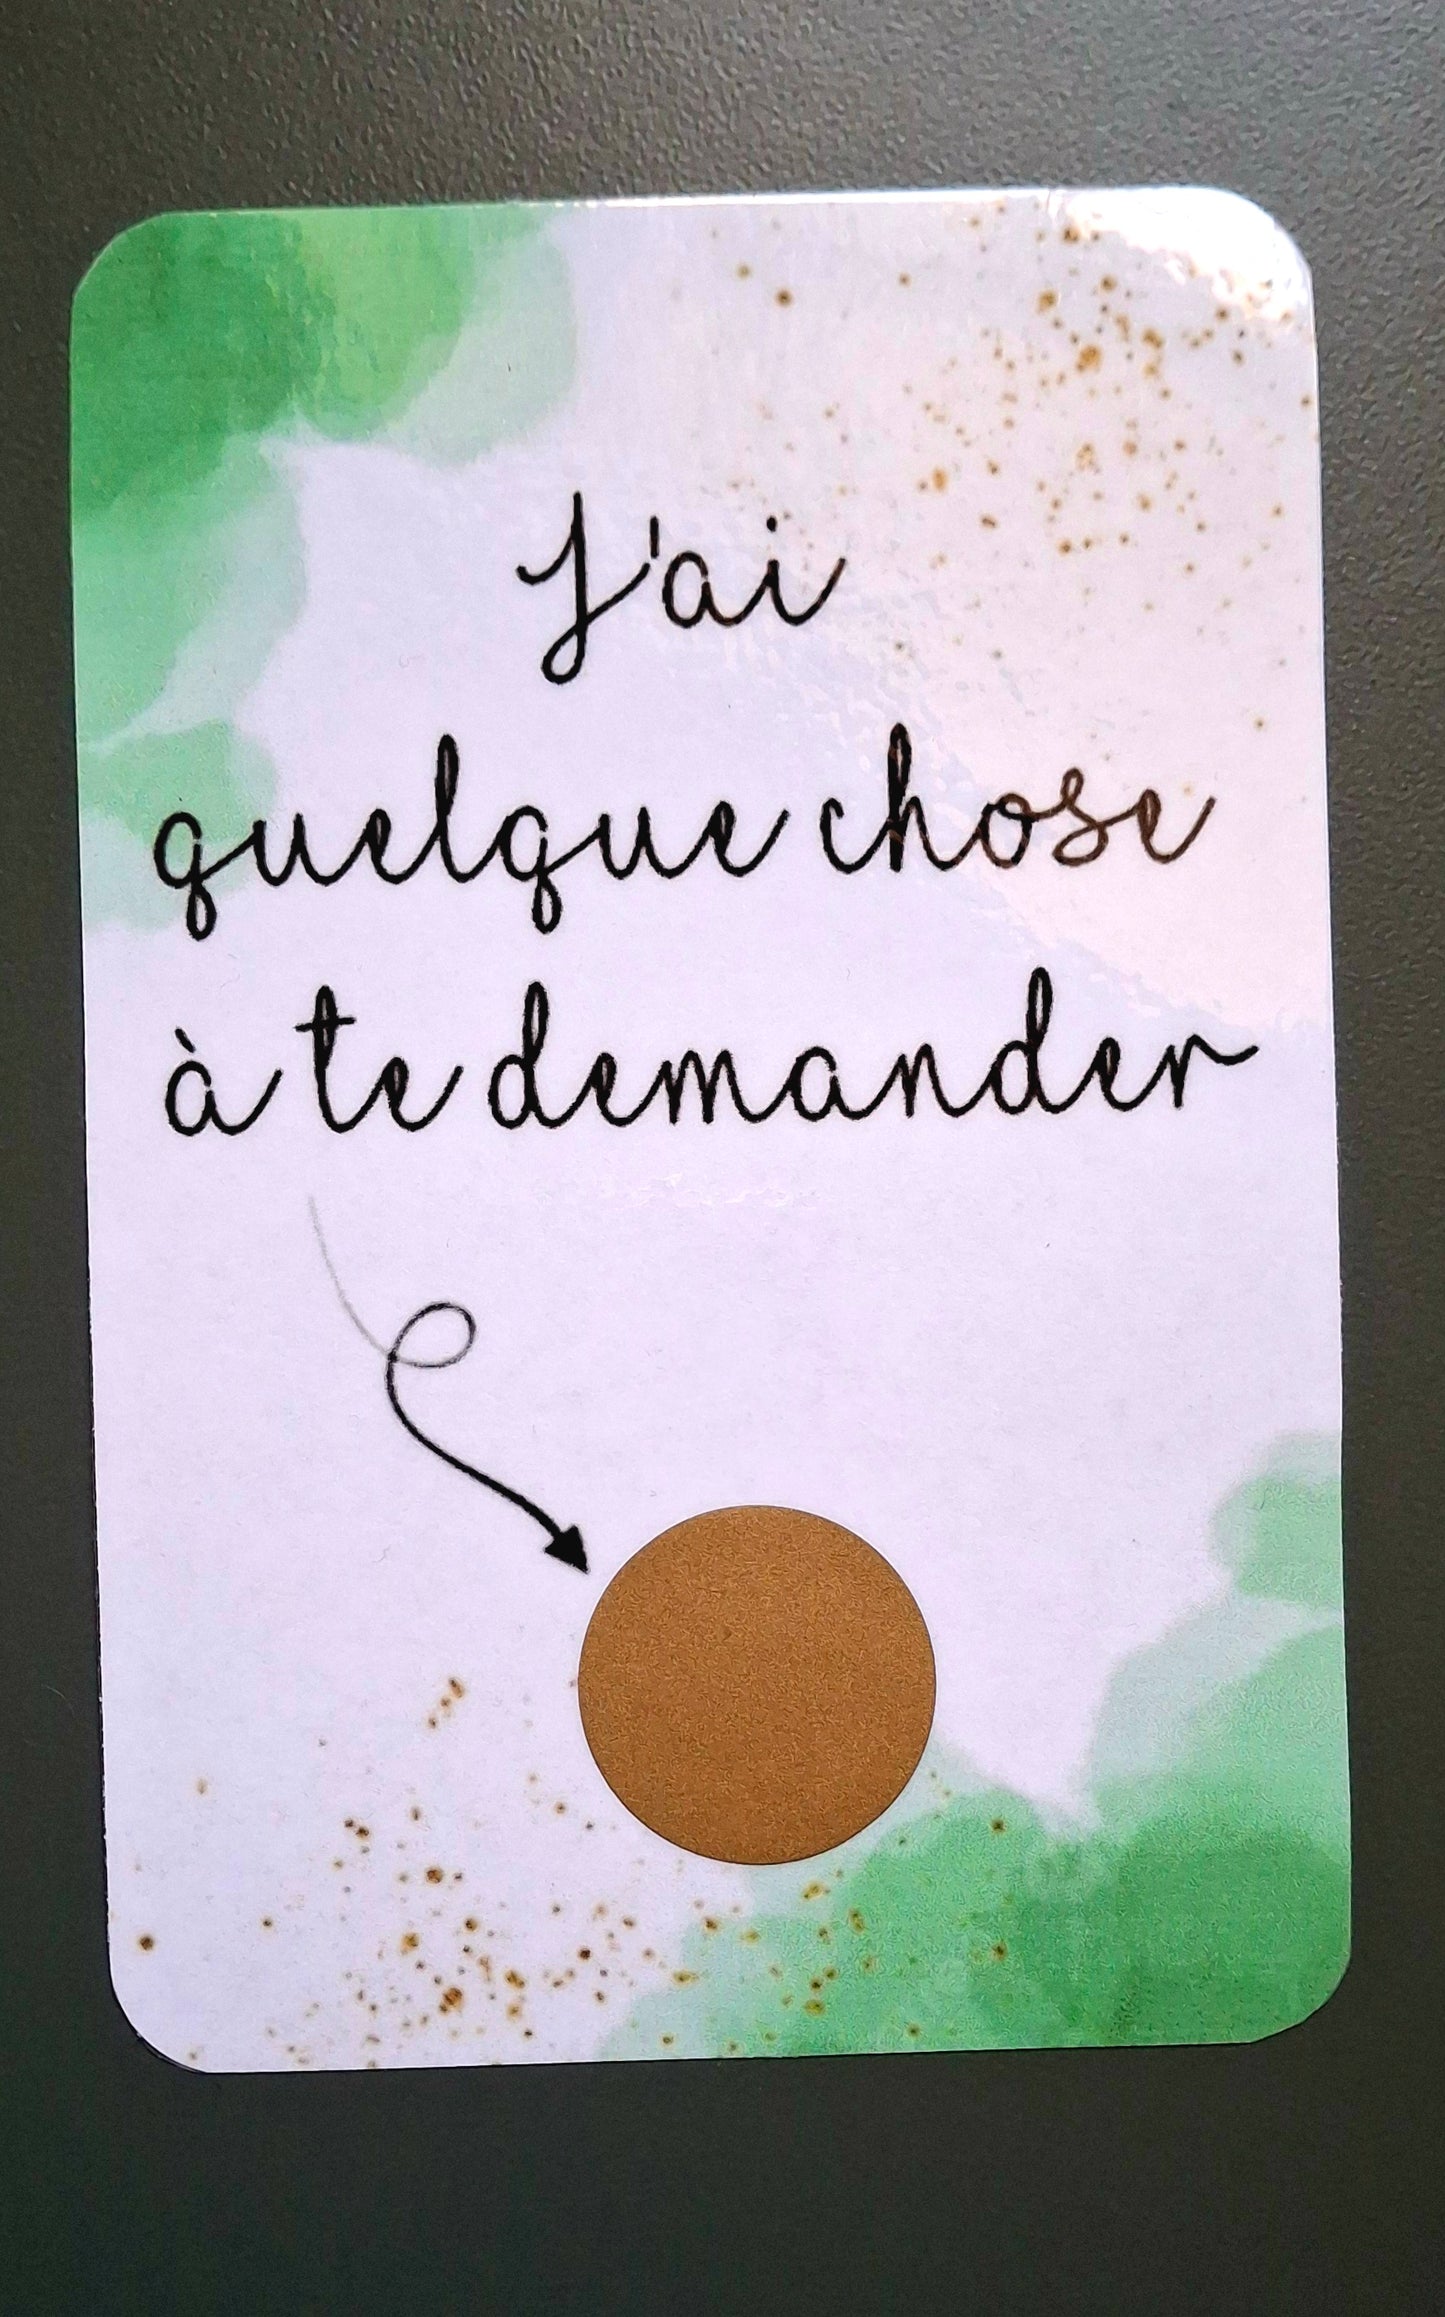 J'ai
quelque chose
à te demander